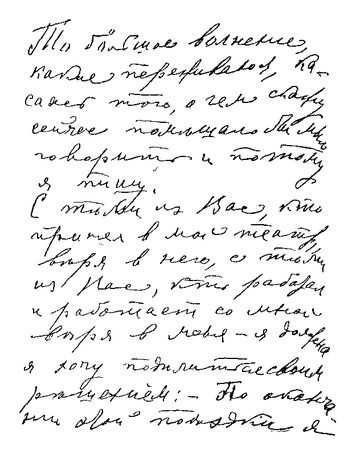 То большое волнение,
какое переживаю я, ка-
саясь того, о чем скажу
сейчас помешало бы мне
говорить и потому
я пишу.
С теми из Вас, кто
пришел в мой театр,
веря в него, с теми
из Вас, кто работал
и работает со мной
веря в меня – я должна
я хочу поделиться своим
решением: – По оконча
нии этой поездки я